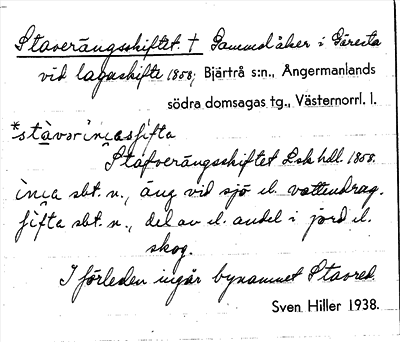 Staverängsskiftet. † Gammal åker i Gäresta
vid lagaskifte 1858; Bjärtrå s:n., Ångermanlands
södra domsagas tg., Västernorrl. l.
*stàvərıŋɑsfıfta
Stafverängsskiftet Lsk hdl. 1858.
ıŋɑ sbt. n., äng vid sjö el. vattendrag.
fıfta sbt. n., del av el. andel i jord el.
skog.
I förleden ingår bynamnet Stavred
Sven Hiller 1938.